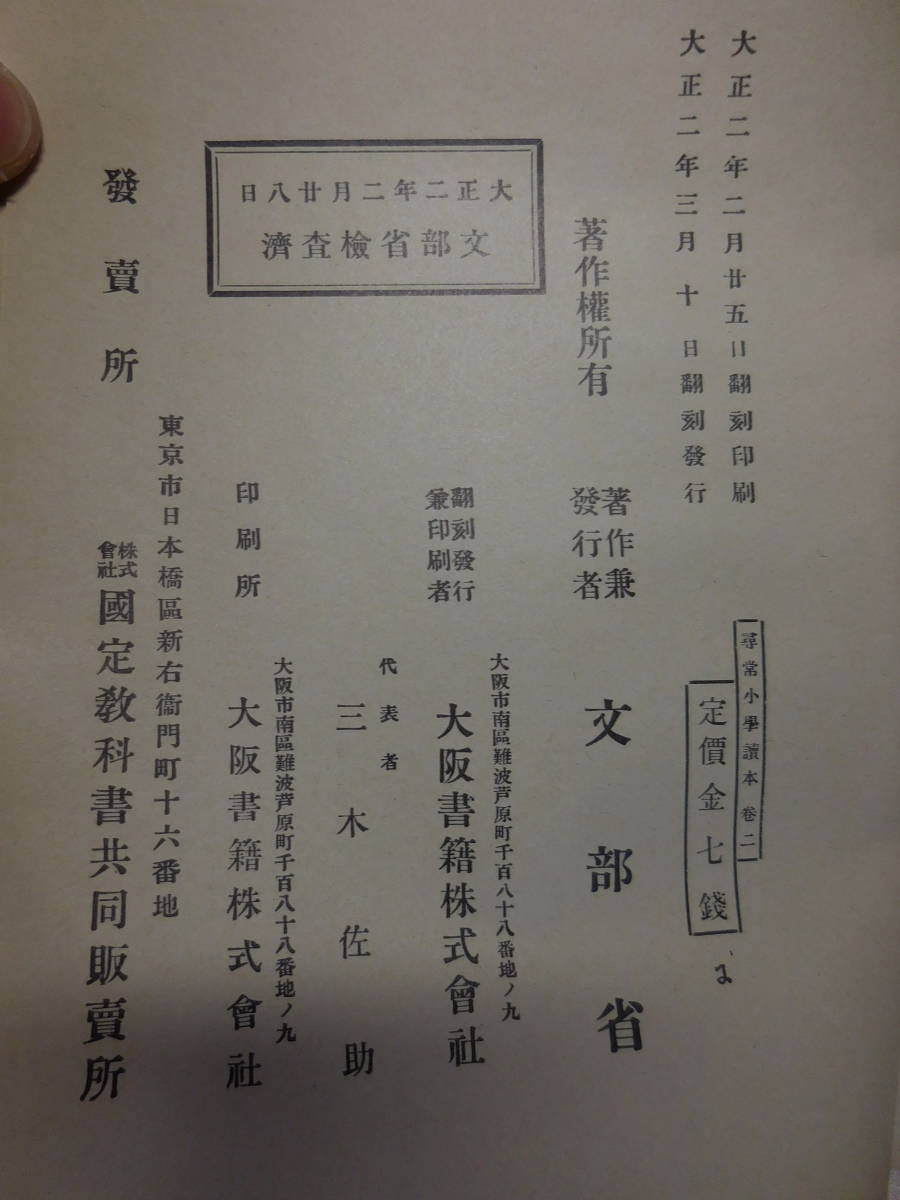 大正二年二月廿五日翻刻印刷
大正二年三月十日翻刻發行
尋常小學讀本卷二
定價金七錢
著作權所有
著作兼
發行者
文部省
大正二年二月廿八日
文部省檢査濟
翻刻發行
兼印刷者
大阪市南區難波芦原町千百八十八番地ノ九
大阪書籍株式會社
代表者
三木佐助
印刷所
大阪市南區難波芦原町千百八十八番地ノ九
大阪書籍株式會社
發賣所
東京市日本橋區新右衞門町十六番地
株式
會社
國定敎科書共同販賣所